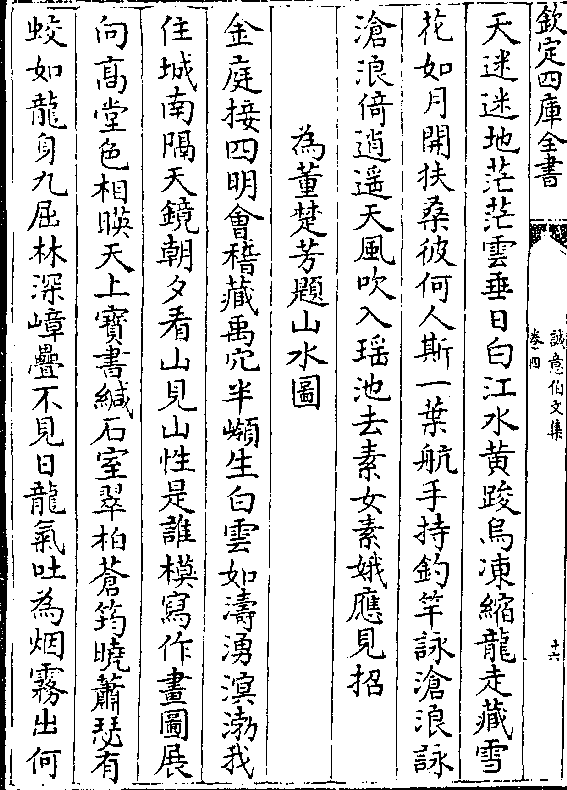 欽定四庫全書
誠意伯文集
卷四
十六
天迷迷地茫茫雲垂日白江水黄踆烏凍縮龍走藏雪
花如月開扶桑彼何人斯一葉航手持釣竿詠滄浪詠
滄浪倚逍遥天風吹入瑶池去素女素娥應見招
為董楚芳題山水圖
金庭接四明會稽藏禹穴半巔生白雲如濤湧溟渤我
住城南隅天鏡朝夕看山見山性是誰模寫作畫圖展
向髙堂色相暎天上寳書緘石室翠柏蒼筠曉蕭瑟有
蛟如龍身九屈林深嶂疊不見日龍氣吐為烟霧出何